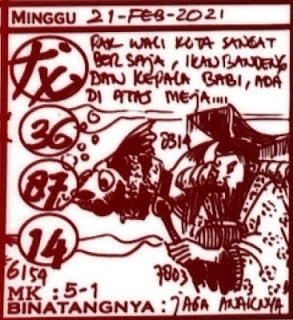 MINGGU 21-FEB-2021
PAK WALI KOTA SANGAT
BERSAJA, IKAN BANDENG
DAN KEPALA BABI, ADA
DI ATAS MEJA....
36
87
14
0314
6159
7803
MK : 5-1
BINATANGNYA : JAGA ANAKNYA